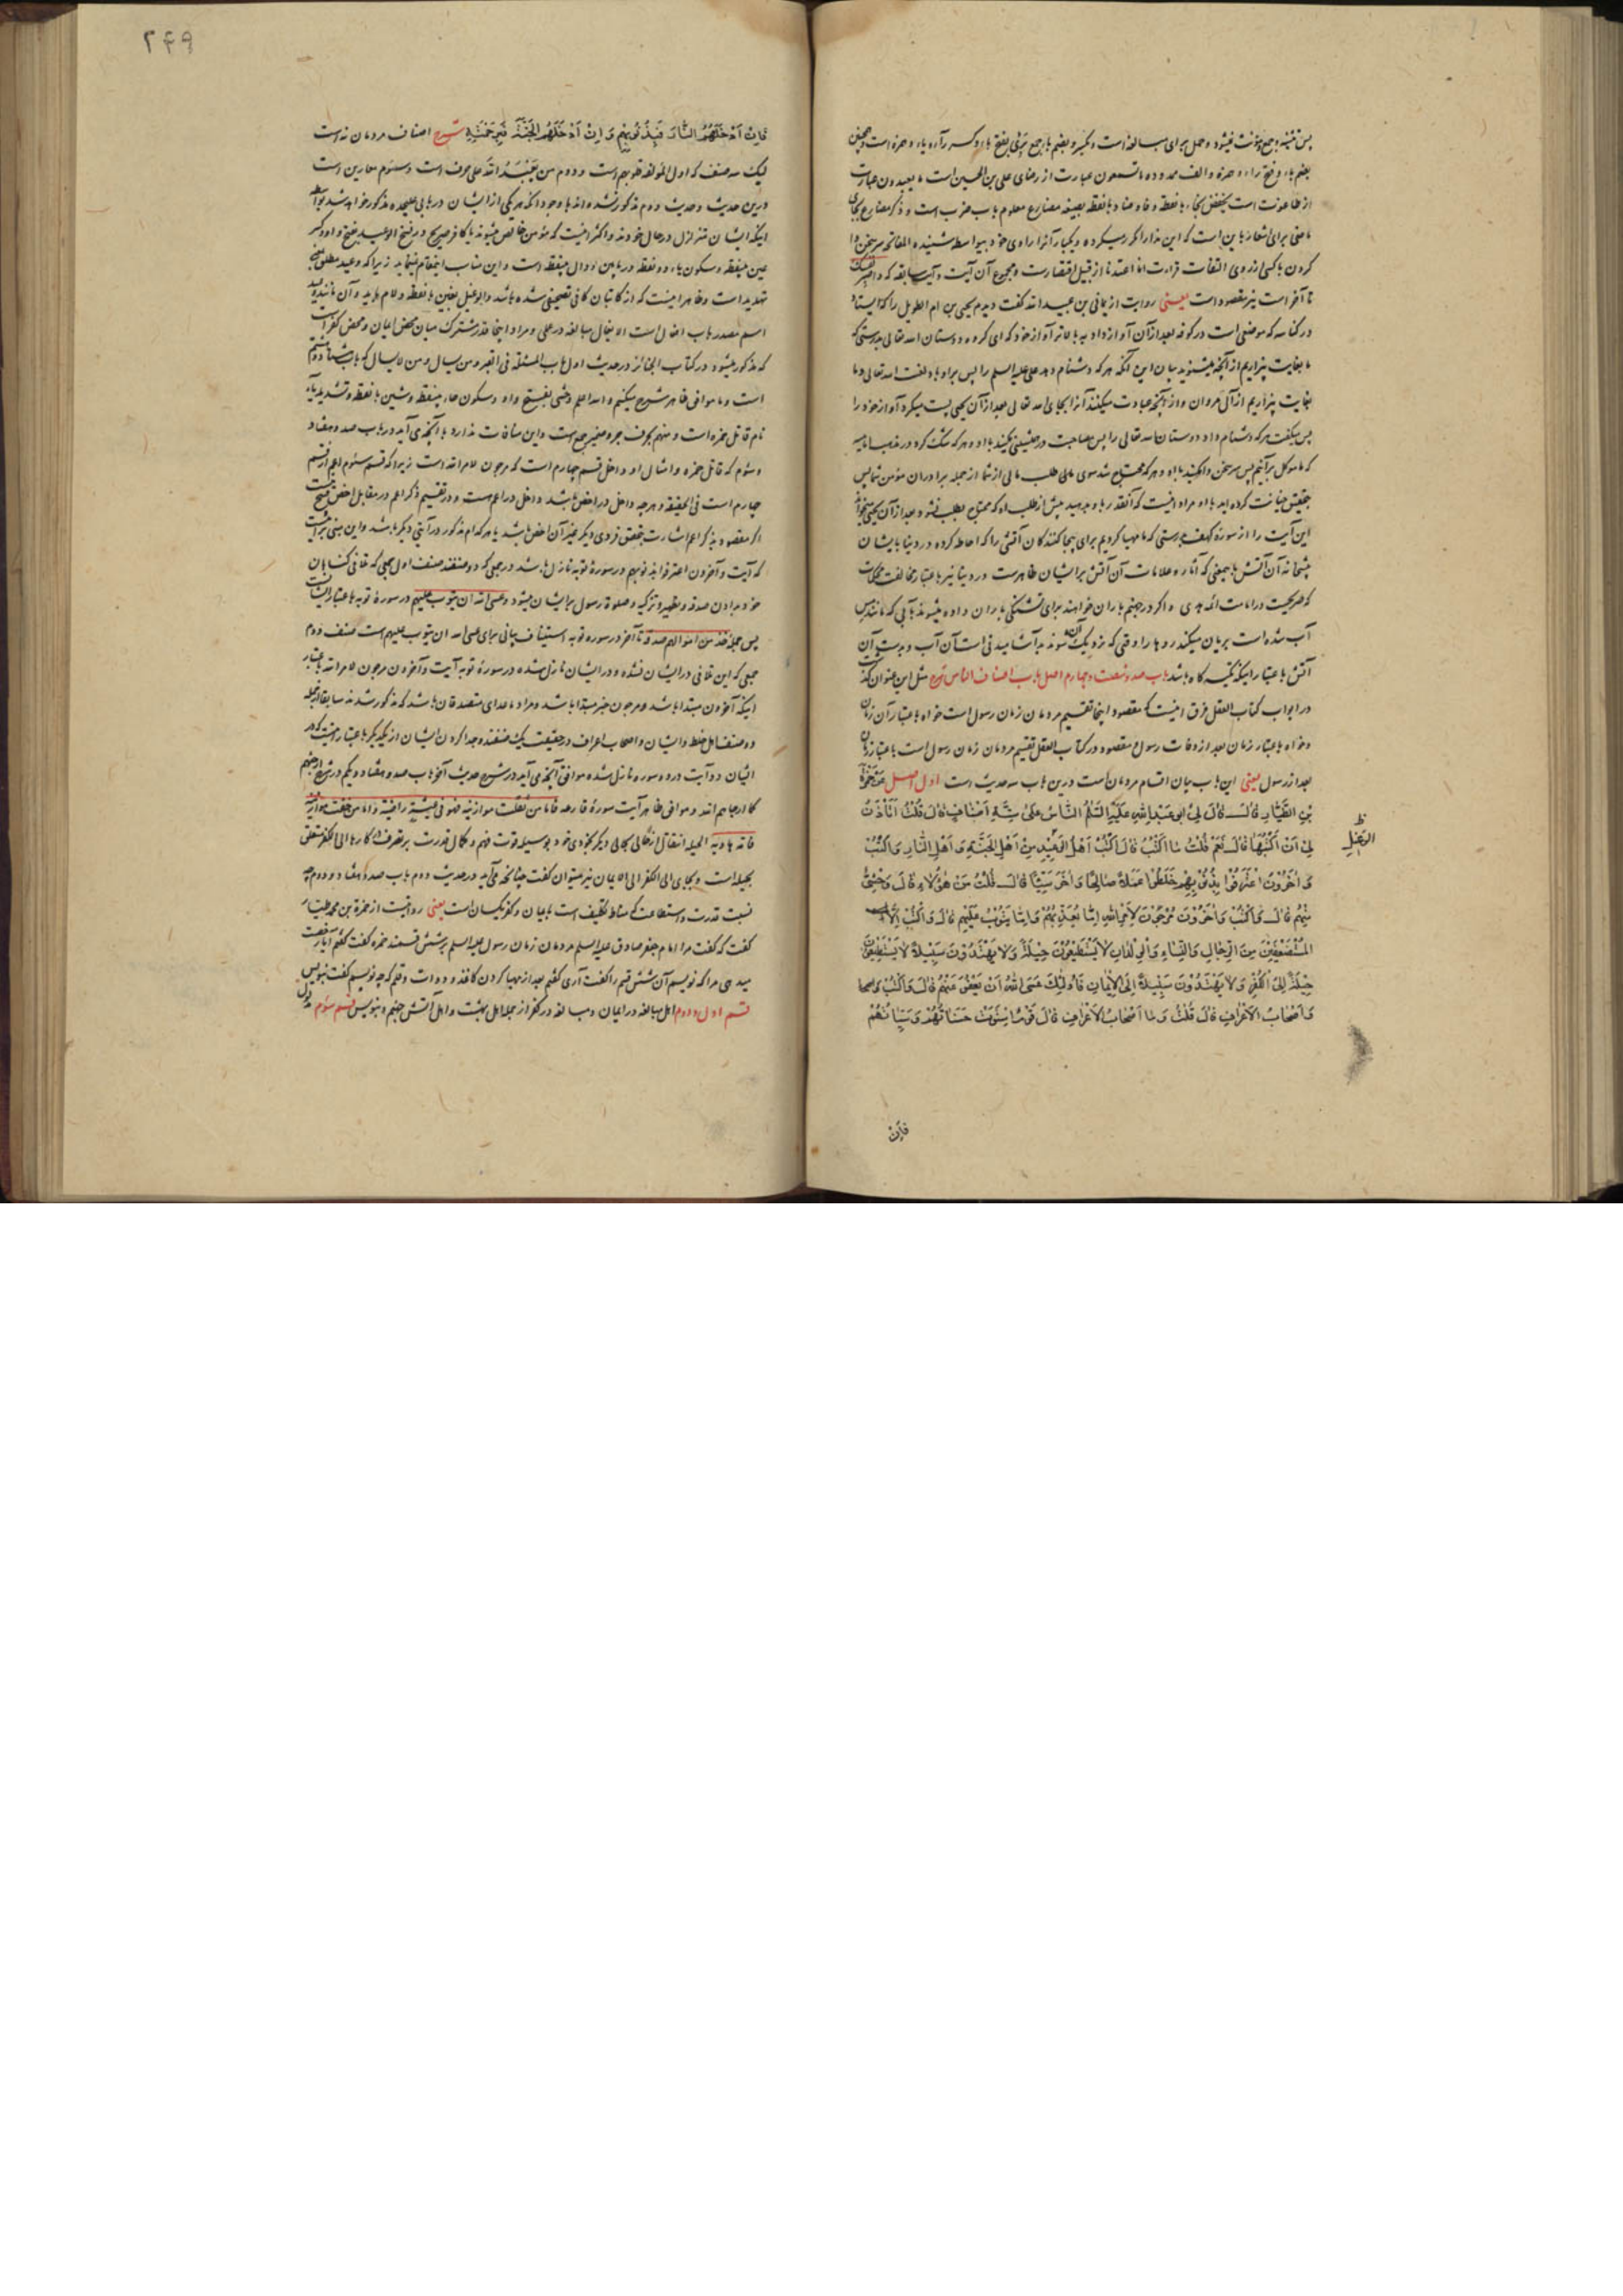 پس تثنیه و جمع و مؤنث نمیشود و حمل برای مبالغه است
بضم باء و فتح راء و همزه و الف ممدوده ما تسمعون عبارت از رضای علی بن الحسین است ما یعبدون عبارت
از طاعوت است یخفض بخاء با نقطه و فاء و ضاد با نقطه بصیغه مضارع معلوم باب ضرب است و ذکر مضارع بجای
ماضی برای اشعار باین است که این ندا را مکرر میکرده و یکبار آنرا راوی خود بیواسطه شنیده
کردن با کسی از روی التفات قراءت انا اعتدنا از قبیل اقتضار است و مجموع آن آیت و آیت سابقه که
تا آخر است نیز مقصود است یعنی روایت از یمانی بن عبید الله گفت دیدم یحیی بن ام الطویل را که ایستاد
در کناسه که موضعی است در کوفه بعد از آن آواز داد به بالاتر آواز خود که ای گروه دوستان الله تعالی بدرستی که
ما بغایت بیزاریم از آنچه میشنوید بیان این آنکه هر که دشنام دهد علی علیه السلم را پس بر او باد لعنت الله تعالی و ما
بغایت بیزاریم از آل مروان و از آنچه عبادت میکنند آنرا بجای الله تعالی بعد از آن یحیی پست میکرد آواز خود را
پس میگفت هر که دشنام داد دوستان الله تعالی را پس مصاحبت و همنشینی مکنید با او و هر که شک کرد در مذهب امامیه
که ما موکل بر آنیم پس سر سخن وا مکنید با او و هر که محتاج شد سوی مالی طلب مالی از شما از جمله برادران مؤمن شما پس
بتحقیق خیانت کرده اید با او مراد اینست که آنقدر باو بدهید پیش از طلب او که محتاج بطلب نشود بعد از آن یحیی میخواند
این آیت را از سورهٔ کهف بدرستی که ما مهیا کردیم برای بیجا کنندگان آتشی را که احاطه کرده در دنیا بایشان
شیخانهٔ آن آتش بمعنی که آثار و علامات آن آتش بر ایشان ظاهر است در دنیا نیز باعتبار مخالفت محکمات
که صریحست در امامت ائمه هدی و اگر در جهنم باران خواهند برای تشنگی باران داده میشوند بآبی که مانند مس
آب شده است بریان میکند روها را وقتی که نزدیک آن شوند بد آشامیدنی است آن آب و بد است آن
آتش باعتبار اینکه تکیه گاه باشد باب صد و شصت و چهارم اصل باب اصناف الناس شرح مثل این عنوان گذشت
در ابواب کتاب العقل فرق اینست که مقصود اینجا تقسیم مردمان زمان رسول است خواه باعتبار آن زمان
و خواه باعتبار زمان بعد از وفات رسول و مقصود در کتاب العقل تقسیم مردمان زمان رسول است باعتبار زمان
بعد از رسول یعنی این باب بیان اقسام مردمان است درین باب سه حدیث است اول اصل عَنْ حَمْزَةَ
بْنِ الطَّيَّارِ قَالَ قَالَ لِي ابو عَبْدِ اللهِ عَلَيْهِ السَّلَمُ النَّاسُ عَلَى سِتَّةِ اَصْنَافٍ قَالَ قُلْتُ اَتَأْذَنُ
لِي اَنْ اَكْتُبَهَا قَالَ نَعَمْ قُلْتُ مَا اَكْتُبُ قَالَ اَكْتُبْ اَهْلَ الْوَعِيْدِ مِنْ اَهْلِ الْجَنَّةِ وَ اَهْلِ النَّارِ وَ اكْتُبْ
وَ اٰخَرُوْنَ اعْتَرَفُوْا بِذُنُوْبِهِمْ خَلَطُوْا عَمَلًا صَالِحًا وَ اٰخَرَ سَيِّئًا قَالَ قُلْتُ مَنْ هٰؤُلَاءِ قَالَ وَحْشِيٌّ
مِنْهُمْ قَالَ وَ اكْتُبْ وَ اٰخَرُوْنَ مُرْجَوْنَ لِاَمْرِ اللهِ اِمَّا يُعَذِّبُهُمْ وَ اِمَّا يَتُوْبُ عَلَيْهِمْ قَالَ وَ اكْتُبْ اِلَّا
الْمُسْتَضْعَفِيْنَ مِنَ الرِّجَالِ وَ النِّسَاءِ وَ الْوِلْدَانِ لَا يَسْتَطِيْعُوْنَ حِيْلَةً وَ لَا يَهْتَدُوْنَ سَبِيْلًا لَا يَسْتَطِيْعُوْنَ
حِيْلَةً اِلَى الْكُفْرِ وَ لَا يَهْتَدُوْنَ سَبِيْلًا اِلَى الْاِيْمَانِ فَاُولٰئِكَ عَسَى اللهُ اَنْ يَعْفُوَ عَنْهُمْ قَالَ وَ اكْتُبْ
وَ اَصْحَابَ الْاَعْرَافِ قَالَ قُلْتُ وَ مَا اَصْحَابُ الْاَعْرَافِ قَالَ قَوْمٌ اسْتَوَتْ حَسَنَاتُهُمْ وَ سَيِّاٰتُهُمْ
فَاِنْ
۲۴۹
فَاِنْ اَدْخَلَهُمُ النَّارَ فَبِذُنُوْبِهِمْ وَ اِنْ اَدْخَلَهُمُ الْجَنَّةَ فَبِرَحْمَتِهِ شرح اصناف مردمان نه است
لیک سه صنف که اول المؤلفة قلوبهم است و دوم من یعبد الله علی حرف است و سئوم معارین است
درین حدیث و حدیث دوم مذکور نشده اند با وجود آنکه هر یکی از ایشان در بابی علیحده مذکور خواهد شد
اینکه ایشان متزلزل در حال خودند و اکثر اینست که مؤمن خالص میشوند یا کافر صریح در نسخ الوعید بفتح واو و کسر
عین بینقطه و سکون یاء دو نقطه در پایین و دال بینقطه است و این مناسب اینمقام نمینماید زیرا که وعید
تهدید است و ظاهر اینست که از کاتبان کافی تصحیفی شده باشد
اسم مصدر باب افعال است الایغال مبالغه در عملی و مراد اینجا قدر مشترک میان محض ایمان و محض کفر است
که مذکور میشود در کتاب الجنائز در حدیث اول باب المسئلة فی القبر و من یسال و من لا یسال
است و ما موافق ظاهر شرح میکنیم و الله اعلم وحشی بفتح واو و سکون حاء بینقطه و شین با نقطه و تشدید یاء
نام قاتل حمزه است و منهم بحرف جر و ضمیر جمع است و این منافات ندارد با آنچه می آید در باب صد و هفتاد
و سئوم که قاتل حمزه و امثال او داخل قسم چهارم است که مرجون لامر الله است زیرا که قسم سئوم اعم از قسم
چهارم است فی الحقیقة و هر چه داخل در اخص باشد داخل در اعم است و در تقسیم ذکر اعم در مقابل اخص قبیح نیست
اگر مقصود بذکر اعم اشارت بتحقق فردی دیگر غیر آن اخص باشد یا هر کدام مذکور در آیتی دیگر باشد و این مبنی بر اینست
که آیت و آخرون اعترفوا بذنوبهم در سورهٔ توبه نازل شد در جمعی که دو صنفند صنف اول جمعی که تلافی گناهان
خود بدادن صدقه و تطهیر و تزکیه و صلوة رسول بر ایشان میشود و عسی الله ان یتوب علیهم در سورهٔ توبه باعتبار ایشانست
پس جملهٔ خذ من اموالهم صدقة تا آخر در سوره توبه استیناف بیانی برای عسی الله ان یتوب علیهم است صنف دوم
جمعی که این تلافی در ایشان نشده و در ایشان نازل شده در سورهٔ توبه آیت و آخرون مرجون لامر الله باعتبار
اینکه آخرون مبتدا باشد و مرجون خبر مبتدا باشد و مراد ما عدای متصدقان باشد که مذکور شدند سابقا
دو صنف اهل خلط و ایشان و اصحاب اعراف در حقیقت یک صنفند و جدا کردن ایشان از یکدیگر باعتبار اینست که در
ایشان دو آیت در دو سوره نازل شده موافق آنچه می آید در شرح حدیث آخر باب صد و هفتاد و یکم
کما ارجاهم الله و موافق ظاهر آیت سورهٔ قارعه فاما من ثقلت موازینه فهو فی عیشة راضیة و اما من خفت موازینه
فامه هاویة الحیلة انتقال از حالی بحالی دیگر بخودی خود بوسیله قوت فهم و کمال قدرت بر تصرف در کارها الی الکفر متعلق
بحیله است و بجای الی الکفر الی الایمان نیز میتوان گفت چنانچه می آید در حدیث دوم باب صد و هفتاد و دوم چه
نسبت قدرت و استطاعت که مناط تکلیف است بایمان و کفر یکسان است یعنی روایتست از حمزة بن محمد طیار
گفت که گفت مرا امام جعفر صادق علیه السلم مردمان زمان رسول علیه السلم بر شش قسمند حمزه گفت گفتم آیا رخصت
میدهی مرا که نویسم آن شش قسم را گفت آری گفتم بعد از مهیا کردن کاغذ و دوات و قلم که چه نویسم گفت بنویس
قسم اول و دوم اهل مبالغه در ایمان و مبالغه در کفر از جمله اهل بهشت و اهل آتش جهنم و بنویس قسم سئوم